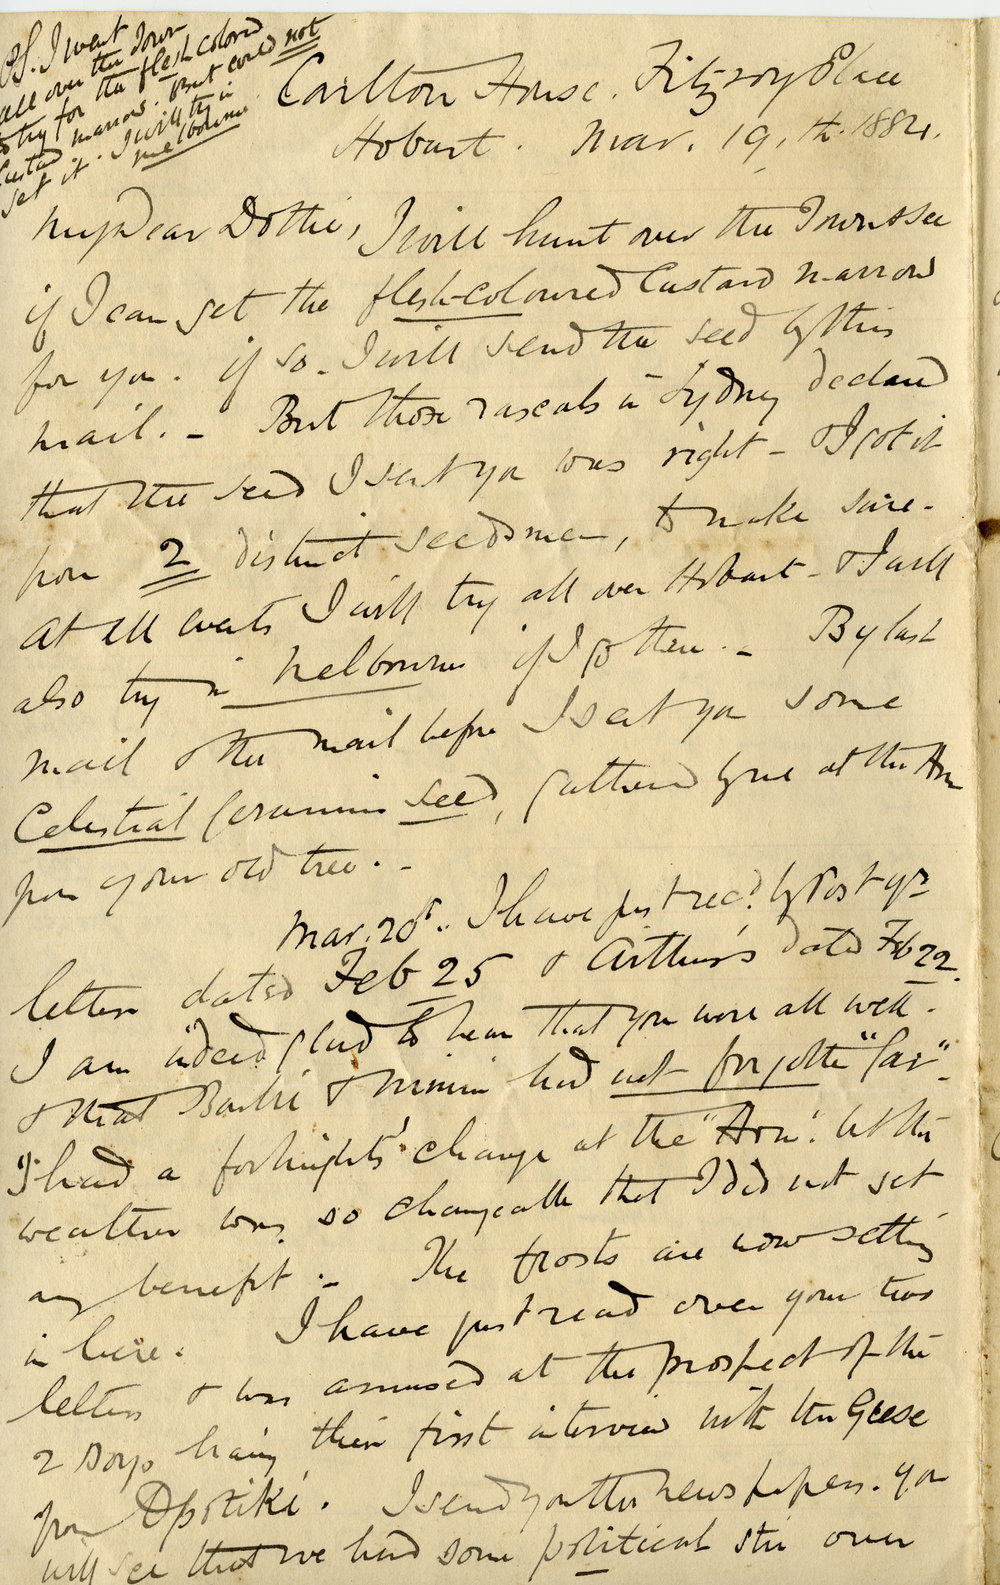 PS. I went
all over the Town
to try for the flesh colored
Custard marrow. But could not
get it. I will try in
Melbourne
Carlton House. Fitzroy Place
Hobart. Mar. 19.th 1884.
My Dear Dottie, I will hunt over the Town & see
if I can get the flesh-coloured Custard Marrow
for you. If so - I will send the seed by this
mail. - But those rascals in Sydney declared
that the seed I sent you was right - & I got it
from 2 distinct seedsmen, to make sure -
at all events I will try all over Hobart - & I will
also try in Melbourne if I go there. - By last
mail & the mail before I sent you some
Celestial Geranium seed, gathered by me at the
from your old tree. -
Mar. 20th. I have just recd. by Post yr
letters dated Feb 25 & Arthur's dated Feb 22.
I am indeed glad to hear that you were all well -
& that & Minnie had not forgotten
I had a fortnights' change at the but the
weather was so changeable that I did not get
any benefit. - The frosts are now setting
in here. I have just read over your two
letters & was amused at the prospect of the
2 Boys having their first interview with the Geese
from Opotiki. I send you the newspapers. You
will see that we had some political stir over